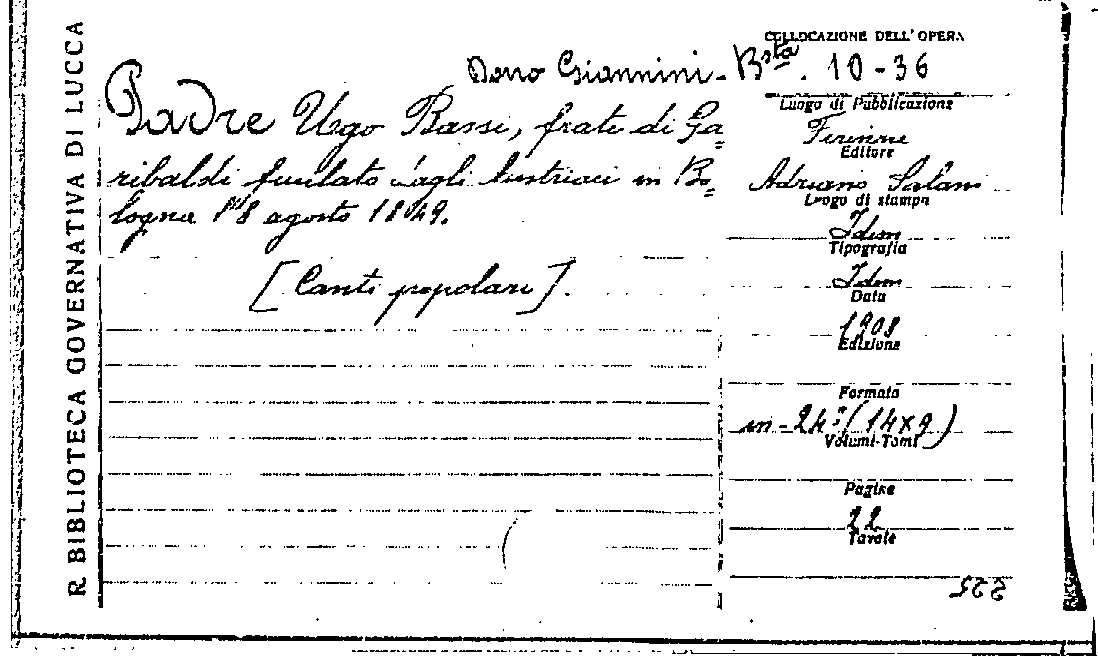 R BIBLIOTECA GOVERNATIVA DI LUCCA
COLLOCAZIONE DELL'OPERA
Dono Giannini - Bsta. 10-36
Padre Ugo Bassi, frate di Ga=
ribaldi fucilato dagli Austriaci in Bo=
logna l'8 agosto 1849.
[Canti popolari].
Luogo di Pubblicazione
Firenze
Editore
Adriano Salani
Luogo di stampa
Idem
Tipografia
Idem
Data
1908
Edizione
Formato
in-24° (14x9)
Volumi-Tomi
Pagine
22
Tavole
225